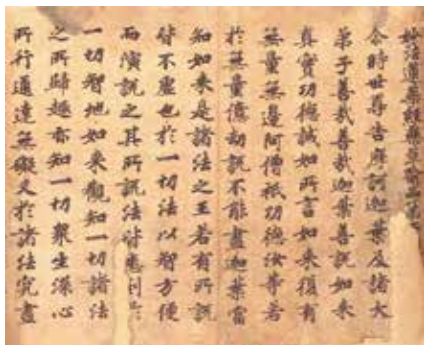 妙法蓮華經藥草喻品第
尒時世尊告摩訶迦葉及諸大
弟子善哉善哉迦葉善說如來
真實功德誠如所言如來復有
無量無邊阿僧祇功德汝等若
於無量億劫說不能盡迦葉當
知如來是諸法之王若有所說
皆不虛也於一切法以智方便
而演說之其所說法皆悉到於
一切智地如來觀知一切諸法
之所歸趣亦知一切眾生深心
所行通達無礙又於諸法究盡